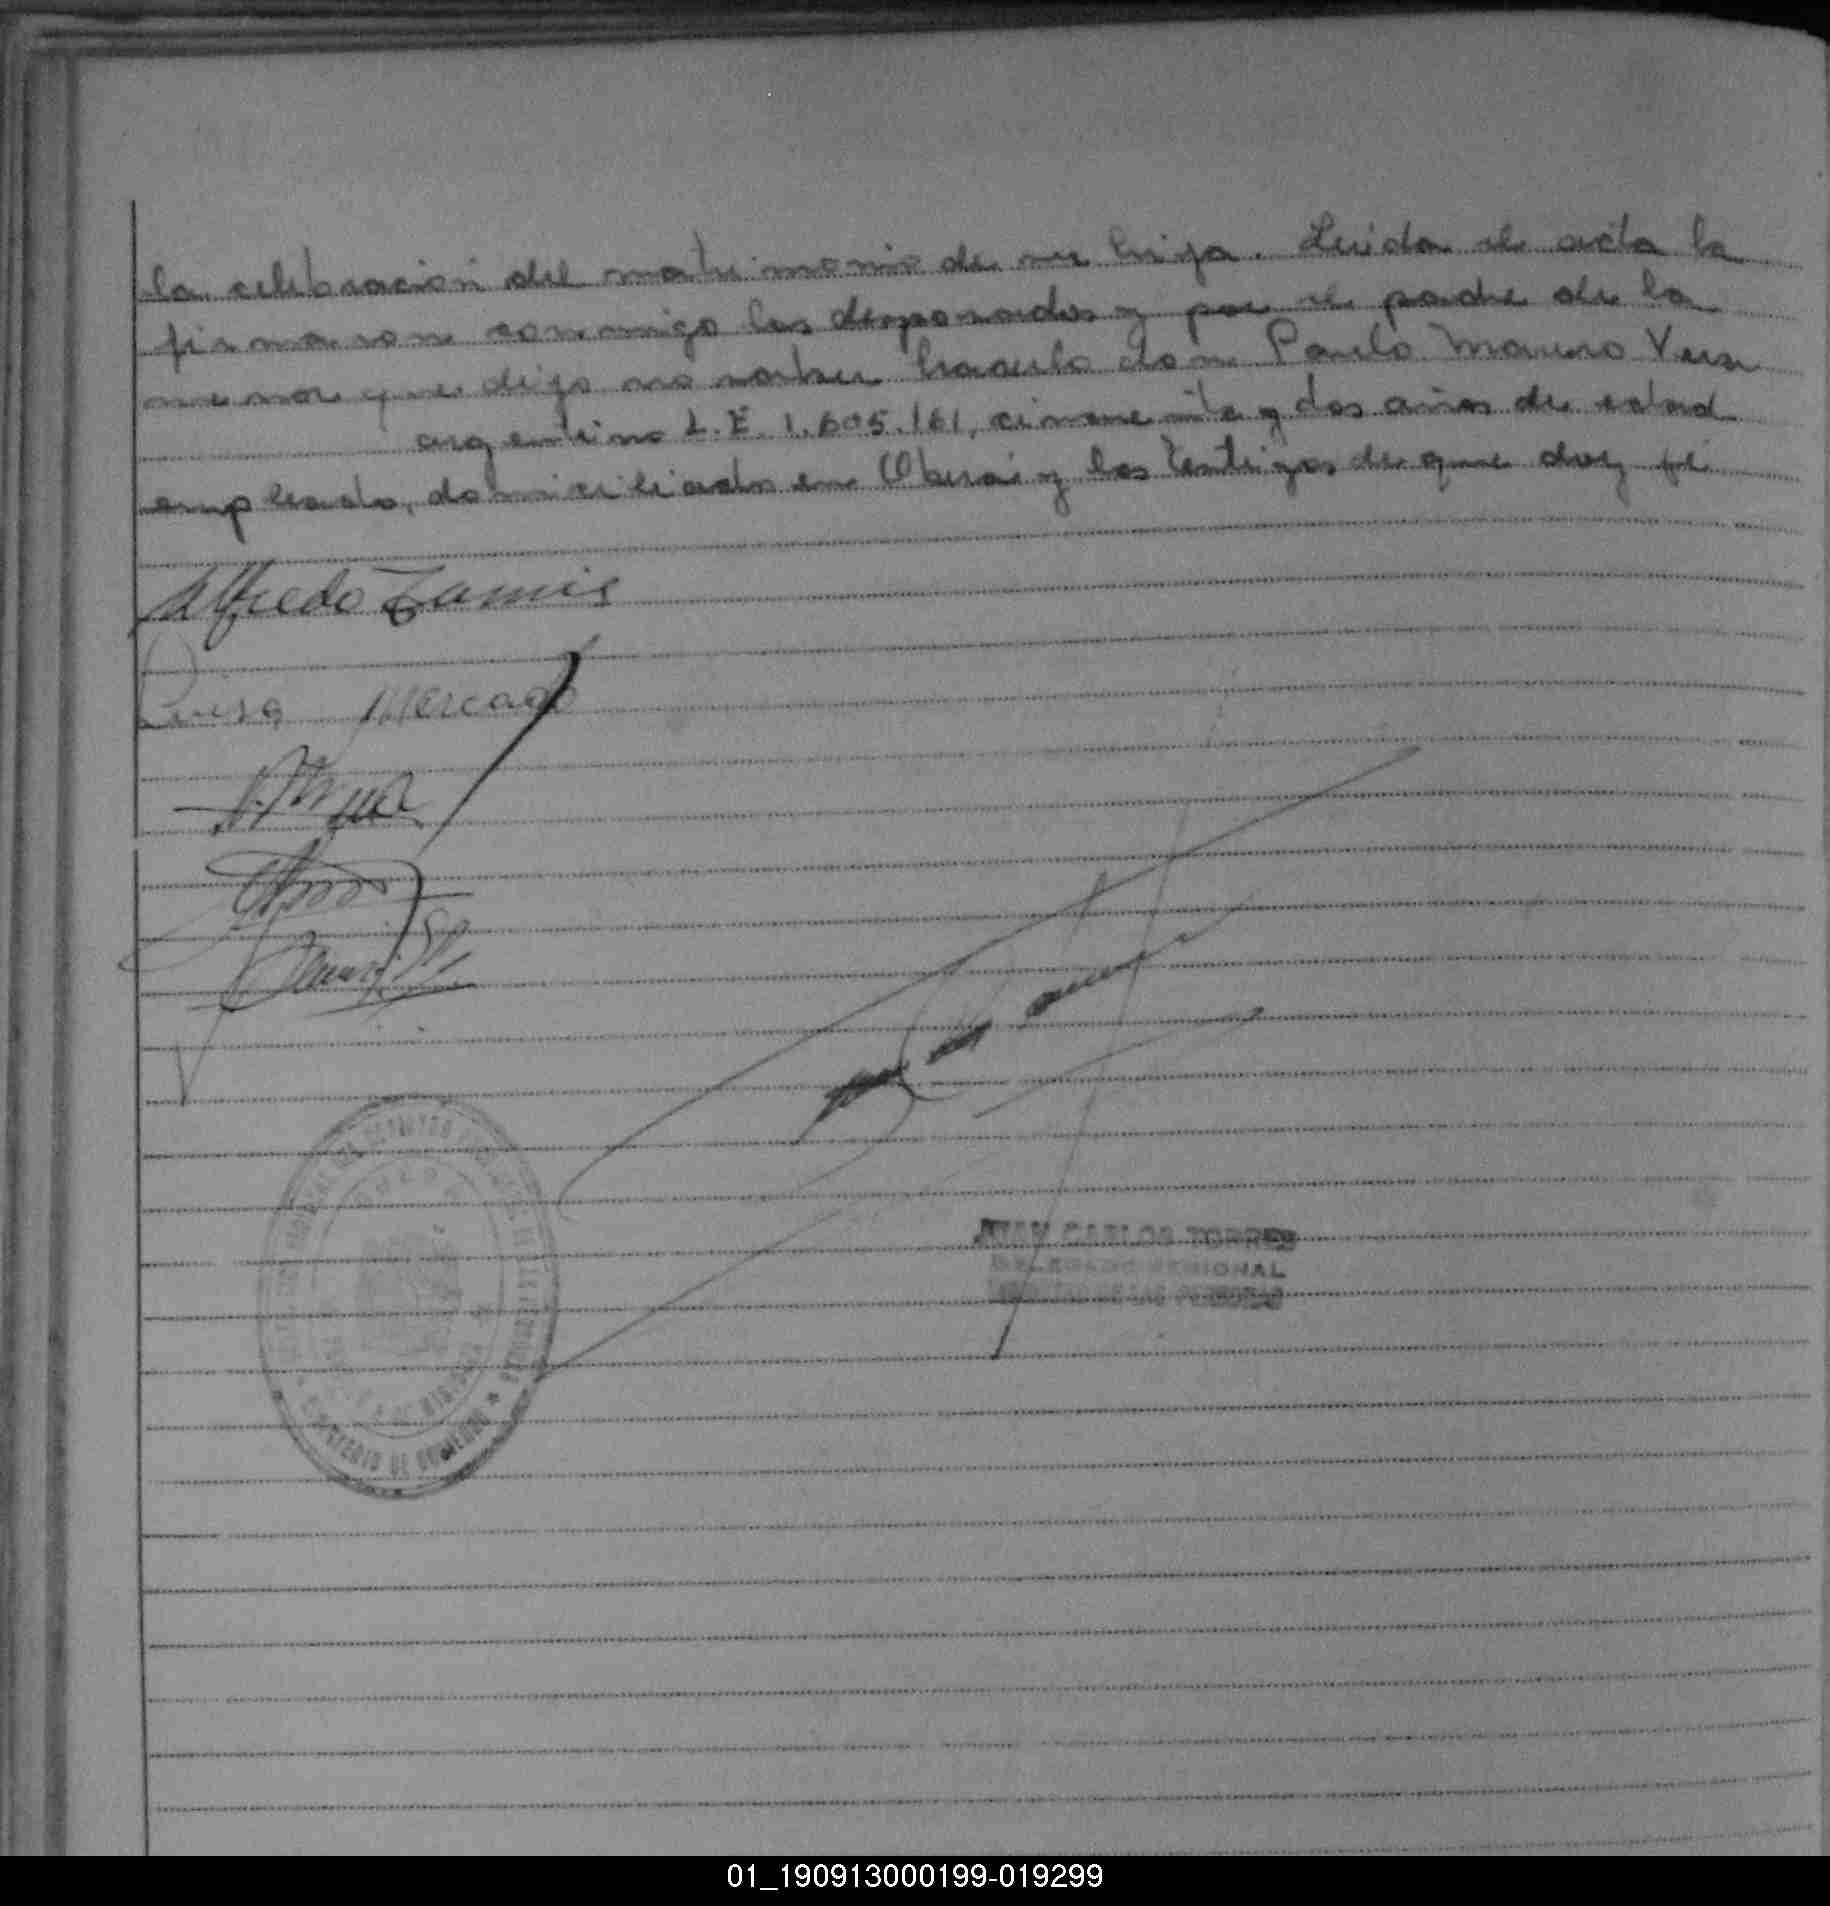 la celebración del matrimonio de su hija. Leida el acta la
firmaron conmigo los desposados y por el padre de la
menor que dijo no saber hacerlo don Paulo Mauro Vera
argentino L.E. 1.605.161, cincuenta y dos años de edad
empleado, domiciliado en Oberá y los testigos de que doy fé
Alfredo Zamis
Luisa Mercado
JUAN CARLOS TORRES
DELEGADO REGIONAL
DE LAS PERSONAS
MINISTERIO DE GOBIERNO
01_190913000199-019299